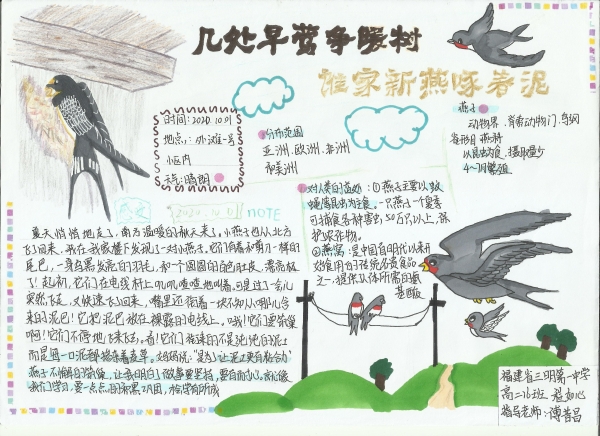 几处早莺争暖树
谁家新燕啄春泥
时间:2020.10.01
地点:
小区内
天气:晴朗
分布范围
亚洲.欧洲.非洲
和美洲
燕子
动物界、脊索动物门.鸟纲
雀形目 燕科
以昆虫为食
4~7月繁殖
对人类的益处:①燕子主要以蚊
蝇等昆虫为主食。一只燕子一个夏季
可捕食各种害虫50万只以上,保
护农作物。
②燕窝:是中国自明代以来开
始食用的传统名贵食品
之一,提供人体所需的氨
基酸
2020.10.1
NOTE
夏天悄悄地走了,南方温暖的秋天来了。小燕子也从北方
飞回来,我在我家楼下发现了一对小燕子。它们有着和剪刀一样的
尾巴,一身乌黑发亮的羽毛,和一个圆圆的白色肚皮,漂亮极
了!起初,它们在电线杆上叽叽喳喳地叫着,可是过一会儿
突然飞走,又快速飞回来,嘴里还衔着一块不知从哪儿合
来的泥巴!它把泥巴放在裸露的电线上。哦!它们要筑巢
啊!它们不停地飞来飞去,看!它们衔来的不是泥
而是每一口泥都掺杂着杂草。妈妈说:“是为了让泥土更有粘合力”
燕子不辞辛苦的筑巢,让我明白了做事要坚持,要自食其心。
我们学习,要一点点的累积巩固,才会学有所成
福建省三明第一中学
高二16班
指导老师:傅善昌